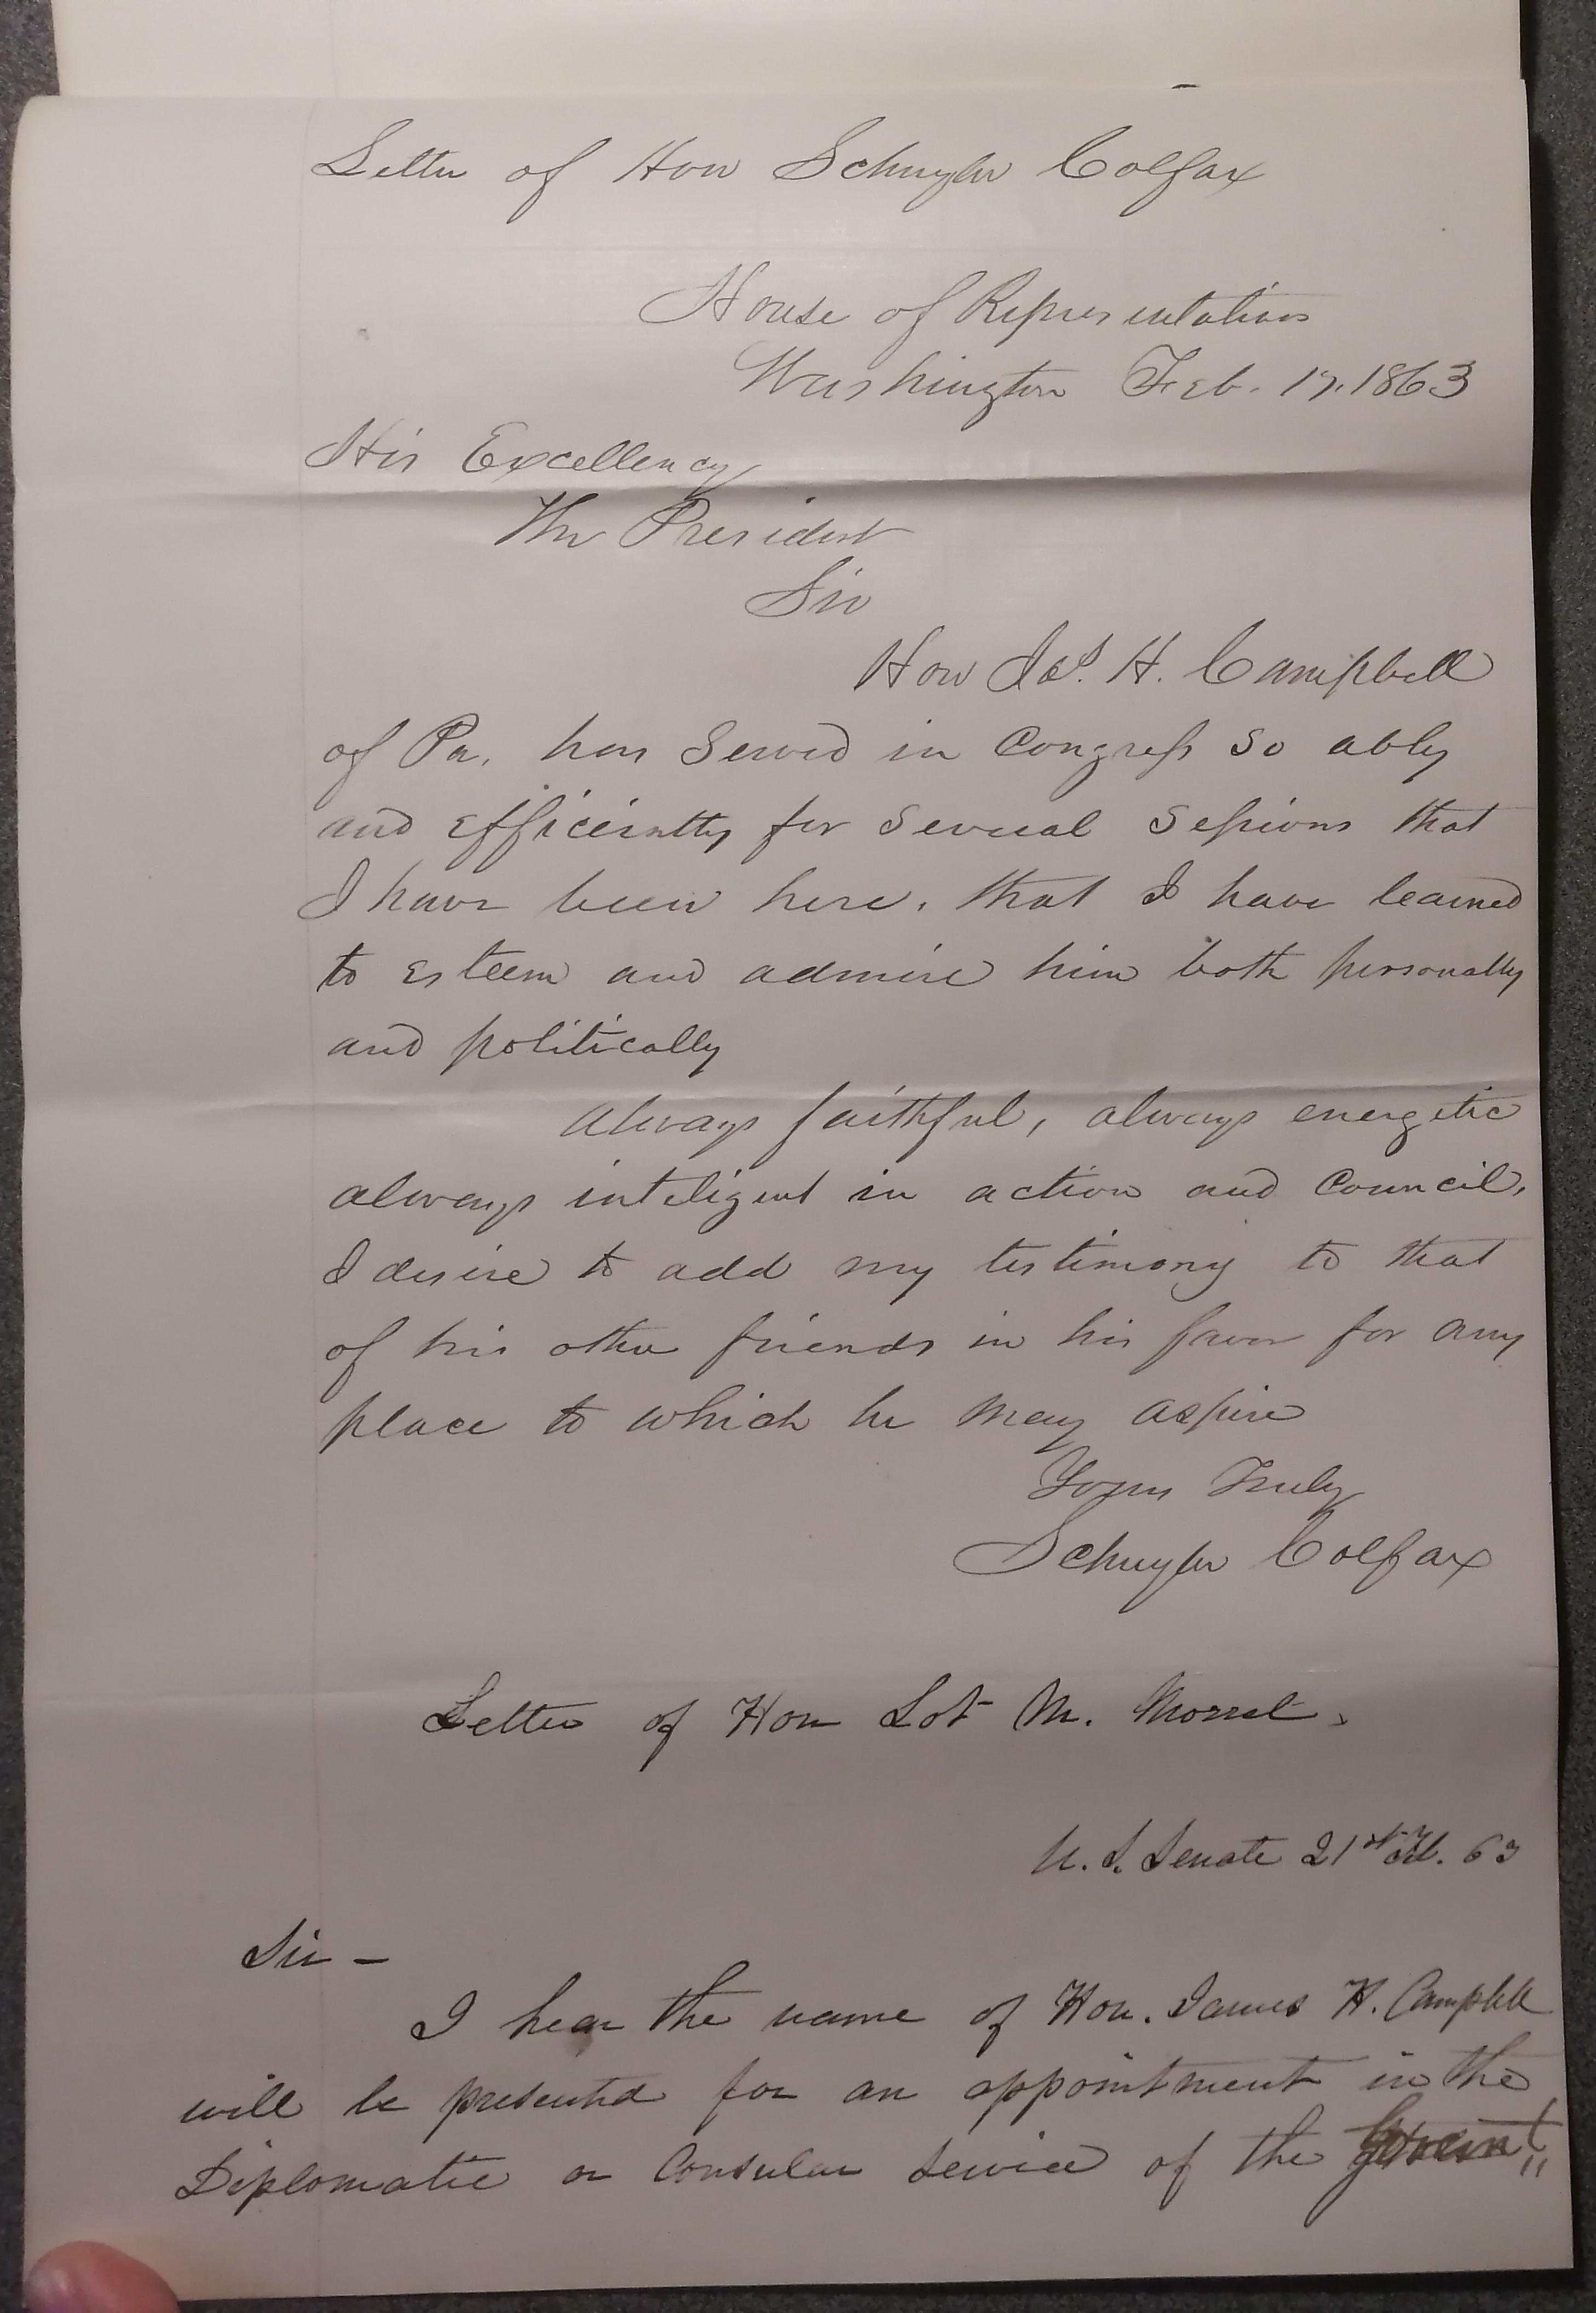 Letter of Hon Schuyler Colfax
House of Representatives
Washington Feb. 17. 1863
His Excellency
The President
Sir
Hon Jas. H. Campbell
of Pa. has served in Congress so ably
and efficiently for several sessions that
I have been here, that I have learned
to esteem and admire him both personally
and politically
Always faithful, always energetic
always inteligent in action and council,
I desire to add my testimony to that
of his other friends in his favor for any
place to which he may aspire
Yours Truly
Schuyler Colfax
Letter of Hon Lot M. Morrel.
U. S. Senate 21st Feb. 63
Sir –
I hear the name of Hon. James H. Campbell
will be presented for an appointment in the
Diplomatic or Consular service of the